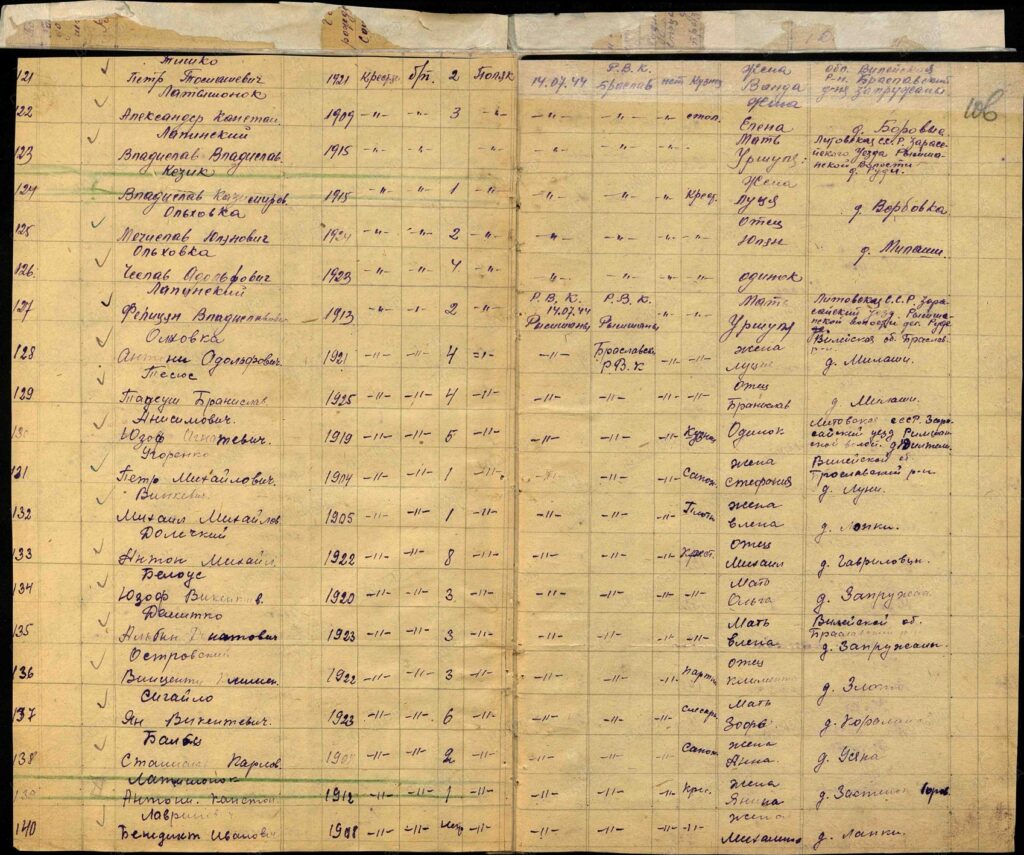 Тишко
121 Петр Томашевич 1921 Кресть б/п. 2 Поляк 14.07.44 Р.В.К. Браслав нет Кузнец Жена Ванда обл. Вилейская р-н. Браславский д. Запружаны
Латышонок
122 Александр Констан. 1909 -"- -"- 3 -"- -"- -"- -"- стол. Жена Елена д. Боровые
Лапинский
123 Владислав Владислав. 1915 -"- -"- -"- -"- -"- -"- Мать Уршуля Литовская С.С.Р. Зарасайского Уезда Рымшанской Волости д. Руди
Козик
124 Владислав Казимиров. 1915 -"- -"- 1 -"- -"- -"- -"- Крест. Жена Луця д. Ворбовка
Ольховка
125 Мечислав Юлянович 1924 -"- -"- 2 -"- -"- -"- -"- -"- Отец Юлян д. Милаши
Ольховка
126 Чеслав Адольфович 1923 -"- -"- 4 -"- -"- -"- -"- -"- одинок
Лапинский
127 Фелицян Владиславович 1913 -"- -"- 2 -"- Р.В.К. 14.07.44 Рымшаны Р.В.К. Рымшаны -"- -"- Мать Уршуля Литовская С.С.Р. Зарасайский уезд. Рымшанской волости дер. Руде
Ольховка
128 Антони Адольфович 1921 -"- -"- 4 -"- -"- Браславск. Р.В.К -"- -"- жена Луция Вилейская об. Браслав. р-н. д. Милаши.
Тесюс
129 Тадеуш Бранислав 1925 -"- -"- 4 -"- -"- -"- -"- -"- Отец Бранислав д. Милаши.
Анисимович.
Юзоф Игнатевич. 1919 -"- -"- 5 -"- -"- -"- -"- Кузнец Одинок Литовская СССР. Зарасайский уезд Римшанской волос.
Ягоренко
131 Петр Михайлович. 1904 -"- -"- 1 -"- -"- -"- -"- Сапож. жена Стефания Вилейской об. Браславский р-н д. Луни.
Винкевич
132 Михаил Михайлов. 1905 -"- -"- 1 -"- -"- -"- -"- Плотн. жена елена д. Лапки.
Долецкий
133 Антон Михайл. 1922 -"- -"- 8 -"- -"- -"- -"- Крест. Отец Михаил д. Гавриловцы.
Белоус
134 Юзоф Викентив. 1920 -"- -"- 3 -"- -"- -"- -"- -"- Мать Ольга д. Запружаны
Далитко
135 Альбин Игнатович 1923 -"- -"- 3 -"- -"- -"- -"- -"- Мать елена Вилейской об. Браславский р-н д. Запружаны.
Островский
136 Винценти Климен. 1922 -"- -"- 3 -"- -"- -"- -"- Отец Климентий
Сигайло
137 Ян Викентевич. 1923 -"- -"- 6 -"- -"- -"- -"- слесарь Мать Зофья
138 Станислав Карлов. -"- -"- 2 -"- -"- -"- -"- Сапож. Жена Анна. д. Усяна
Латышонок
Антони. Констан 1912 -"- -"- 1 -"- -"- -"- -"- Крес. Жена Янина
140 Бенедикт Иванович 1908 -"- -"- -"- -"- -"- -"- -"- жена д. Лапки.